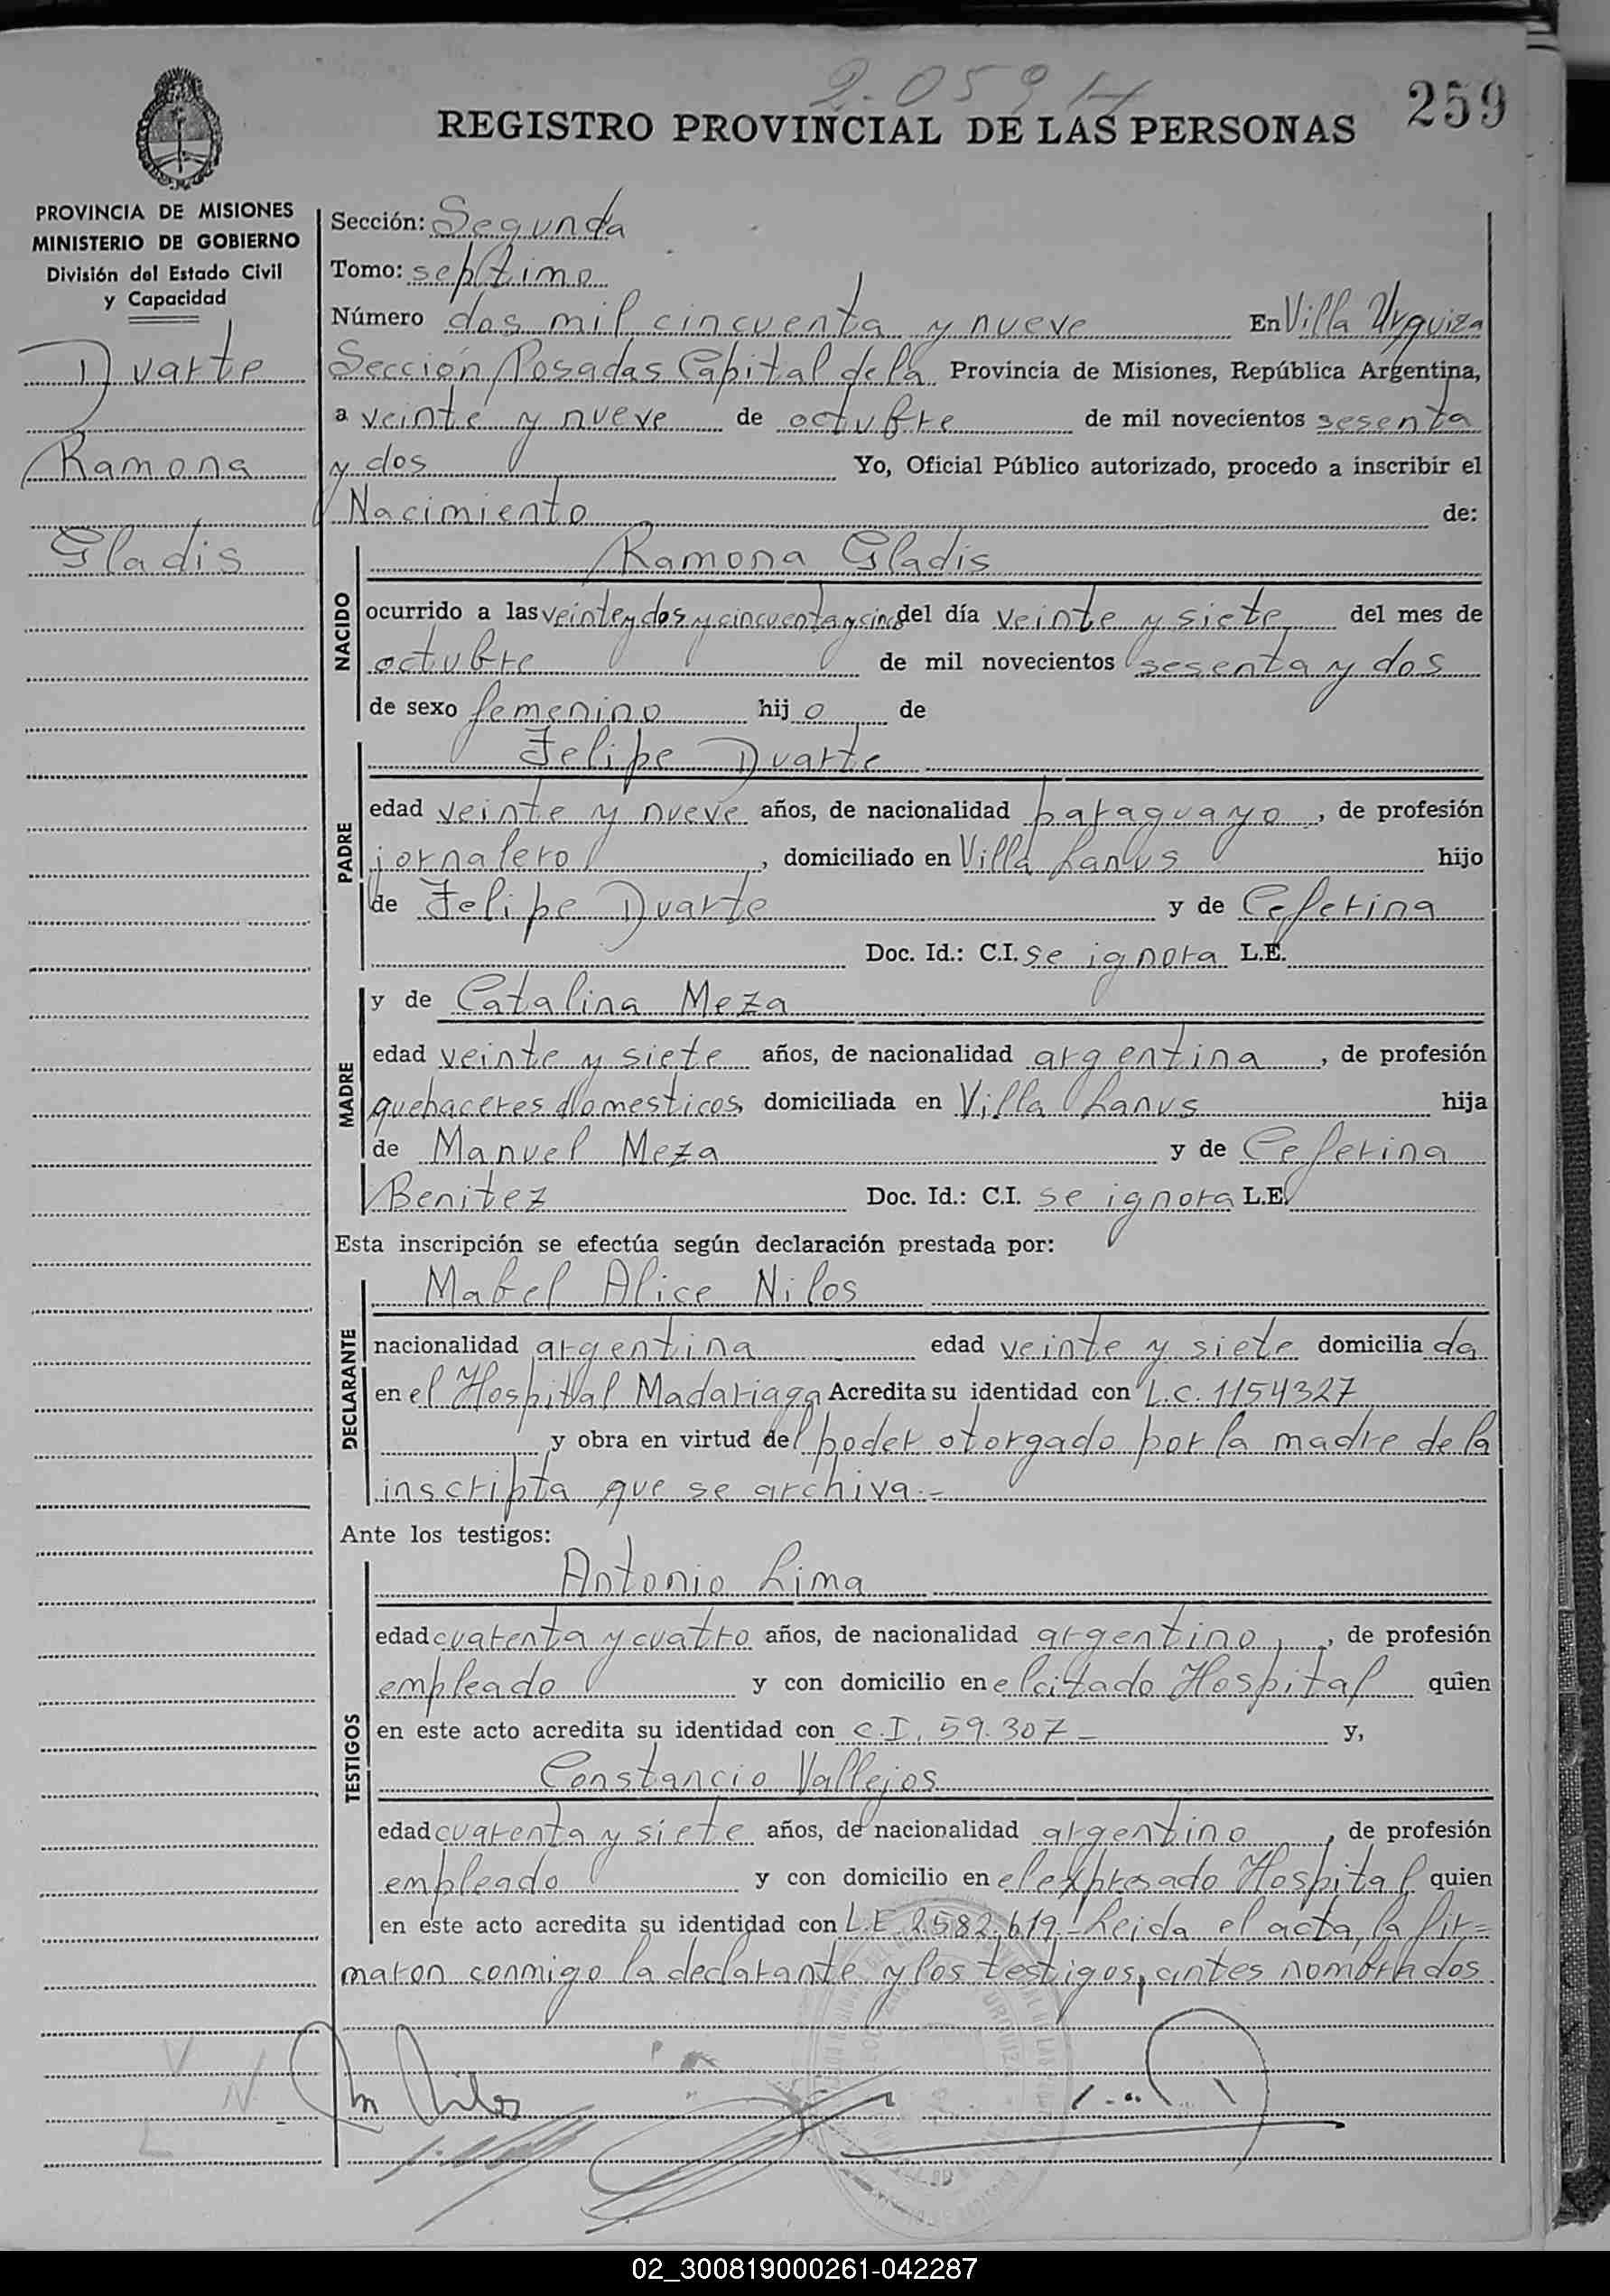 2.059 H
REGISTRO PROVINCIAL DE LAS PERSONAS 259
PROVINCIA DE MISIONES
MINISTERIO DE GOBIERNO
División del Estado Civil
y Capacidad
Duarte
Ramona
Gladis
Sección: Segunda
Tomo: septimo
Número dos mil cincuenta y nueve En Villa Urquiza
Sección Posadas Capital de la Provincia de Misiones, República Argentina,
a veinte y nueve de octubre de mil novecientos sesenta
y dos Yo, Oficial Público autorizado, procedo a inscribir el
Nacimiento de:
NACIDO
Ramona Gladis
ocurrido a las veinte y dos y cincuenta y cinco del día veinte y siete del mes de
octubre de mil novecientos sesenta y dos
de sexo femenino hij o de
PADRE
Felipe Duarte
edad veinte y nueve años, de nacionalidad paraguayo, de profesión
jornalero, domiciliado en Villa Lanus hijo
de Felipe Duarte y de Ceferina
Doc. Id.: C.I. se ignora L.E.
MADRE
y de Catalina Meza
edad veinte y siete años, de nacionalidad argentina, de profesión
quehaceres domesticos, domiciliada en Villa Lanus hija
de Manuel Meza y de Ceferina
Benitez Doc. Id.: C.I. se ignora L.E.
Esta inscripción se efectúa según declaración prestada por:
DECLARANTE
Mabel Alice Nilos
nacionalidad argentina edad veinte y siete domicilia da
en el Hospital Madariaga Acredita su identidad con L.C. 1154327
y obra en virtud del poder otorgado por la madre de la
inscripta que se archiva.-
Ante los testigos:
TESTIGOS
Antonio Lima
edad cuarenta y cuatro años, de nacionalidad argentino, de profesión
empleado y con domicilio en el citado Hospital quien
en este acto acredita su identidad con C.I. 59.307- y,
Constancio Vallejos
edad cuarenta y siete años, de nacionalidad argentino, de profesión
empleado y con domicilio en el expresado Hospital quien
en este acto acredita su identidad con L.E. 2.582.619.- Leida el acta, la fir=
maron conmigo la declarante y los testigos, antes nombrados
02_300819000261-042287